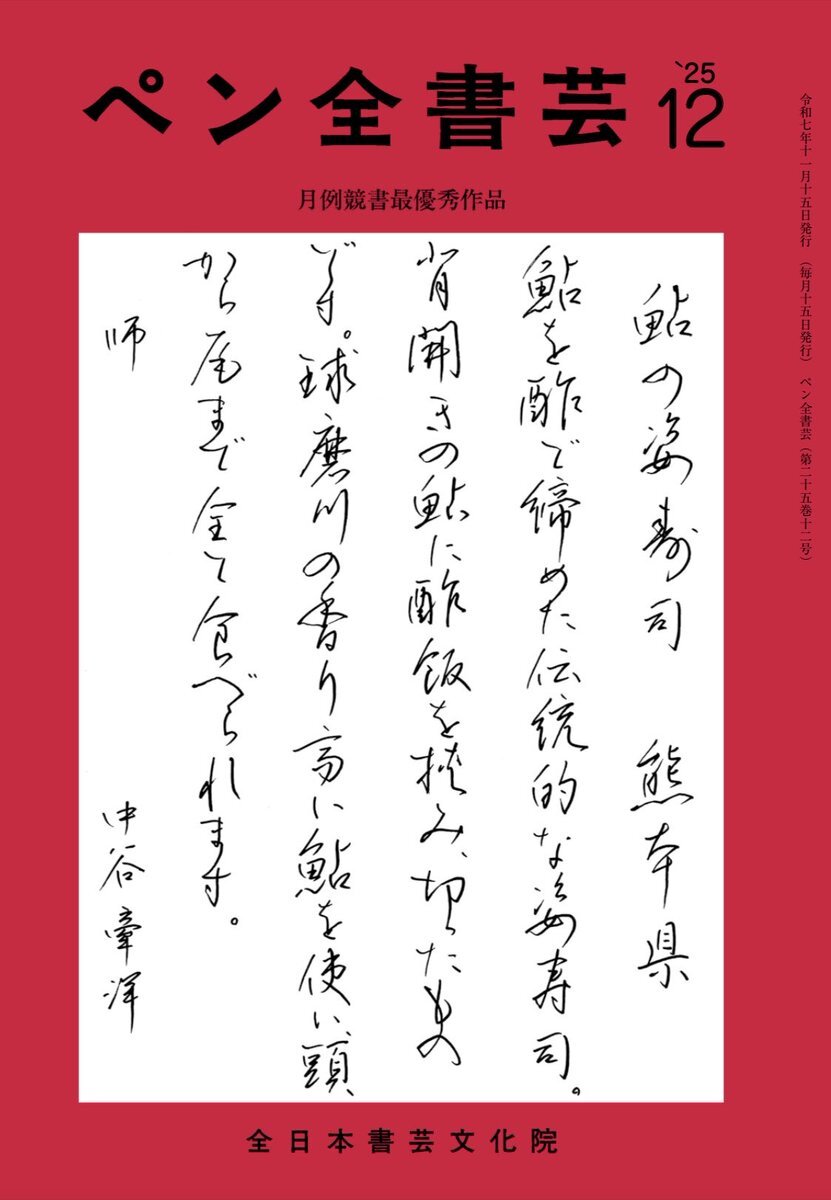 ペン全書芸
'25
12
月例競書最優秀作品
鮎の姿寿司 熊本県
鮎を酢で締めた伝統的な姿寿司。
背開きの鮎に酢飯を挟み、切ったもの
です。球磨川の香り高い鮎を使い、頭
から尾まで全て食べられます。
師 中谷牽洋
全日本書芸文化院
令和七年十一月十五日発行 (毎月十五日発行) ペン全書芸 (第二十五巻十二号)